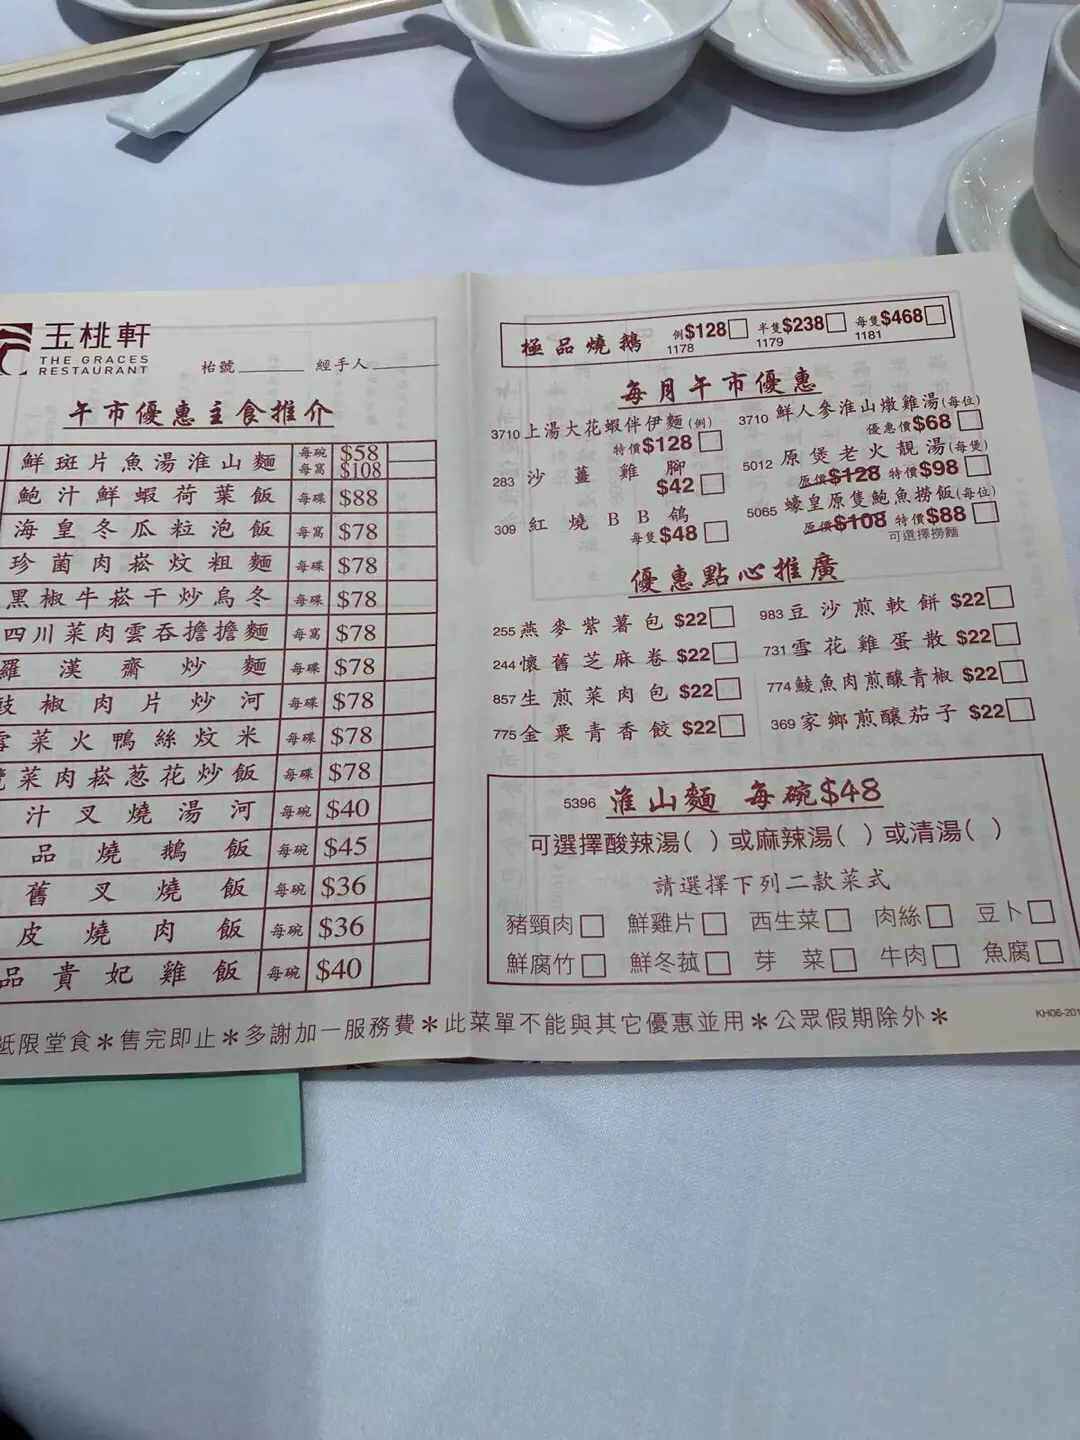 玉桃軒
THE GRACES
RESTAURANT
枱號 經手人
午市優惠主食推介
鮮斑片魚湯淮山麵 每碗 $58 每窩 $108
鮑汁鮮蝦荷葉飯 每碟 $88
海皇冬瓜粒泡飯 每窩 $78
珍菌肉崧炆粗麵 每碟 $78
黑椒牛崧干炒烏冬 每碟 $78
四川菜肉雲吞擔擔麵 每窩 $78
羅漢齋炒麵 每碟 $78
豉椒肉片炒河 每碟 $78
菜火鴨絲炆米 每碟 $78
菜肉崧葱花炒飯 每碟 $78
汁叉燒湯河 每碗 $40
品燒鵝飯 每碗 $45
舊叉燒飯 每碗 $36
皮燒肉飯 每碗 $36
品貴妃雞飯 每碗 $40
極品燒鵝 例$128 半隻$238 每隻$468
1178 1179 1181
每月午市優惠
3710 上湯大花蝦伴伊麵(例) 特價$128
283 沙薑雞腳 $42
309 紅燒BB鴿 每隻$48
3710 鮮人參淮山燉雞湯(每位) 優惠價$68
5012 原煲老火靚湯(每煲) 原價$128 特價$98
5065 蠔皇原隻鮑魚撈飯(每位) 原價$108 特價$88
可選擇撈麵
優惠點心推廣
255 燕麥紫薯包 $22
244 懷舊芝麻卷 $22
857 生煎菜肉包 $22
775 金粟青香餃 $22
983 豆沙煎軟餅 $22
731 雪花雞蛋散 $22
774 鯪魚肉煎釀青椒 $22
369 家鄉煎釀茄子 $22
5396 淮山麵 每碗$48
可選擇酸辣湯( )或麻辣湯( )或清湯( )
請選擇下列二款菜式
豬頸肉 鮮雞片 西生菜 肉絲 豆卜
鮮腐竹 鮮冬菰 芽菜 牛肉 魚腐
祗限堂食*售完即止*多謝加一服務費*此菜單不能與其它優惠並用*公眾假期除外*
KH06-201